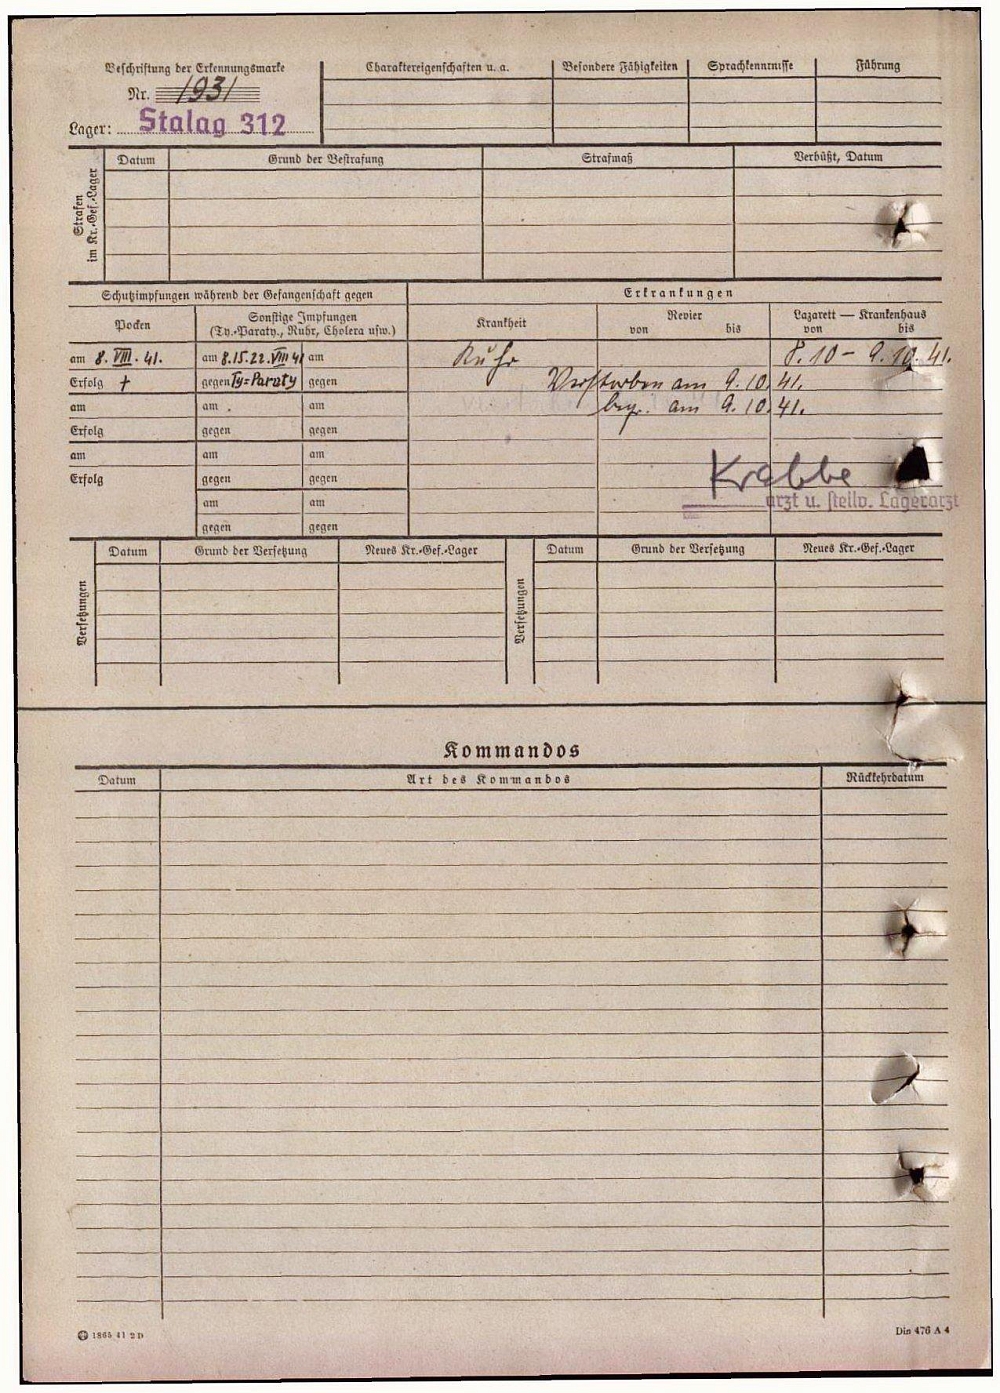 Beschriftung der Erkennungsmarke
Nr. 1931
Lager: Stalag 312
Charaktereigenschaften u. a.
Besondere Fähigkeiten
Sprachkenntnisse
Führung
Strafen im Kr.-Gef.-Lager
Datum
Grund der Bestrafung
Strafmaß
Verbüßt, Datum
Schutzimpfungen während der Gefangenschaft gegen
Erkrankungen
Pocken
Sonstige Impfungen
(Ty.-Paraty., Ruhr, Cholera usw.)
Krankheit
Revier
von bis
Lazarett — Krankenhaus
von bis
am 8. VIII. 41. am 8.15.22. VIII 41 am Ruhr 8. 10 – 9. 10. 41.
Erfolg + gegen Ty=Paraty gegen Verstorben am 9. 10. 41.
am am am begr. am 9. 10. 41.
Erfolg gegen gegen
am am am
Erfolg gegen gegen
Krabbe
am am
arzt u. stellv. Lagerarzt
gegen gegen
Versetzungen
Datum
Grund der Versetzung
Neues Kr.-Gef.-Lager
Versetzungen
Datum
Grund der Versetzung
Neues Kr.-Gef.-Lager
Kommandos
Datum
Art des Kommandos
Rückkehrdatum
1865 41 2 D
Din 476 A 4